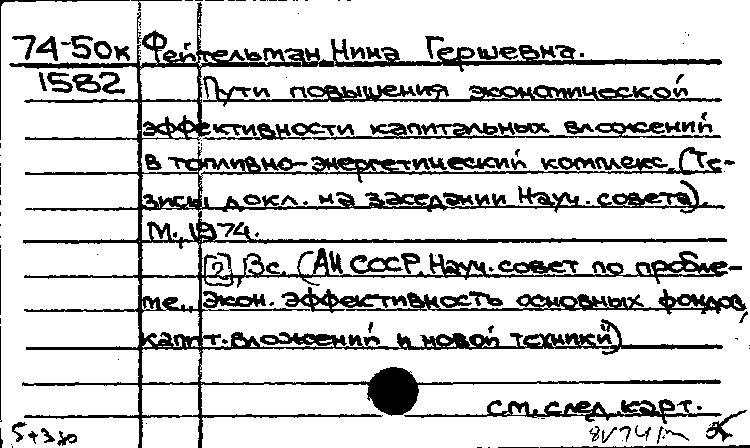 74-50к Фейтельман Нина Гершевна.
1582 Пути повышения экономической
эффективности капитальных вложений
в топливно-энергетический комплекс. (Те-
зисы докл. на заседании Науч. совета).
М., 1974.
[2], 3с. (АН СССР. Науч. совет по пробле-
ме „Экон. эффективность основных фондов,
капит. вложений и новой техники)
см. след. карт.
5+3 8/74